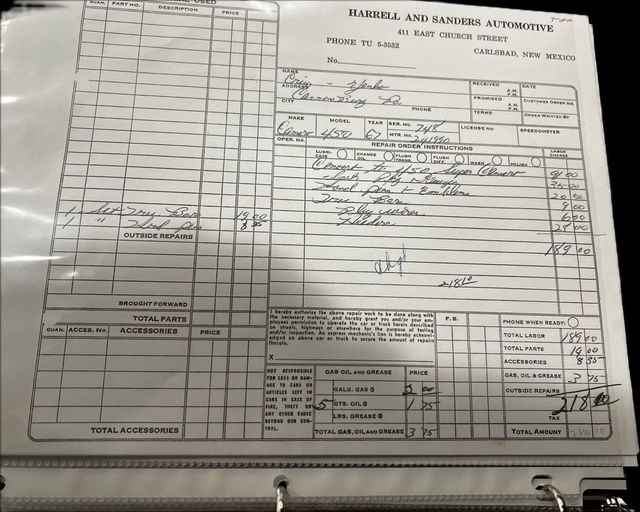 QUAN. PART NO. DESCRIPTION PRICE
HARRELL AND SANDERS AUTOMOTIVE
411 EAST CHURCH STREET
PHONE TU 5-3532 CARLSBAD, NEW MEXICO
No.
NAME
ADDRESS
CITY PHONE
RECEIVED A.M. P.M. DATE
PROMISED A.M. P.M. CUSTOMER ORDER NO.
TERMS ORDER WRITTEN BY
MAKE MODEL YEAR SER. NO. 748 LICENSE NO. SPEEDOMETER
Camaro 450 67 MTR. NO.
OPER. NO. REPAIR ORDER INSTRUCTIONS LABOR CHARGE
LUBRICATE CHANGE OIL FLUSH TRANS. FLUSH DIFF. WASH POLISH
Convert to 450 Super Camaro 91 00
35 00
Hood Pins + Emblems 20 00
Trac Bars 9 00
Plug wires 6 00
Headers 28 00
1 Set Trac Bars 19 00
1 " Hood pins 8 35
OUTSIDE REPAIRS
189 00
218 10
BROUGHT FORWARD
TOTAL PARTS
QUAN. ACCES. No. ACCESSORIES PRICE
TOTAL ACCESSORIES
I hereby authorize the above repair work to be done along with
the necessary material, and hereby grant you and/or your em-
ployees permission to operate the car or truck herein described
on streets, highways or elsewhere for the purpose of testing
and/or inspection. An express mechanic's lien is hereby acknowl-
edged on above car or truck to secure the amount of repairs
thereto.
X
NOT RESPONSIBLE
FOR LOSS OR DAM-
AGE TO CARS OR
ARTICLES LEFT IN
CARS IN CASE OF
FIRE, THEFT OR
ANY OTHER CAUSE
BEYOND OUR CON-
TROL.
GAS OIL AND GREASE PRICE
GALS. GAS @ 2 00
5 QTS. OIL @ 1 75
LBS. GREASE @
TOTAL GAS, OIL AND GREASE 3 75
F.S.
PHONE WHEN READY:
TOTAL LABOR 189 00
TOTAL PARTS 19 00
ACCESSORIES 8 35
GAS, OIL & GREASE 3 75
OUTSIDE REPAIRS
TAX
TOTAL AMOUNT